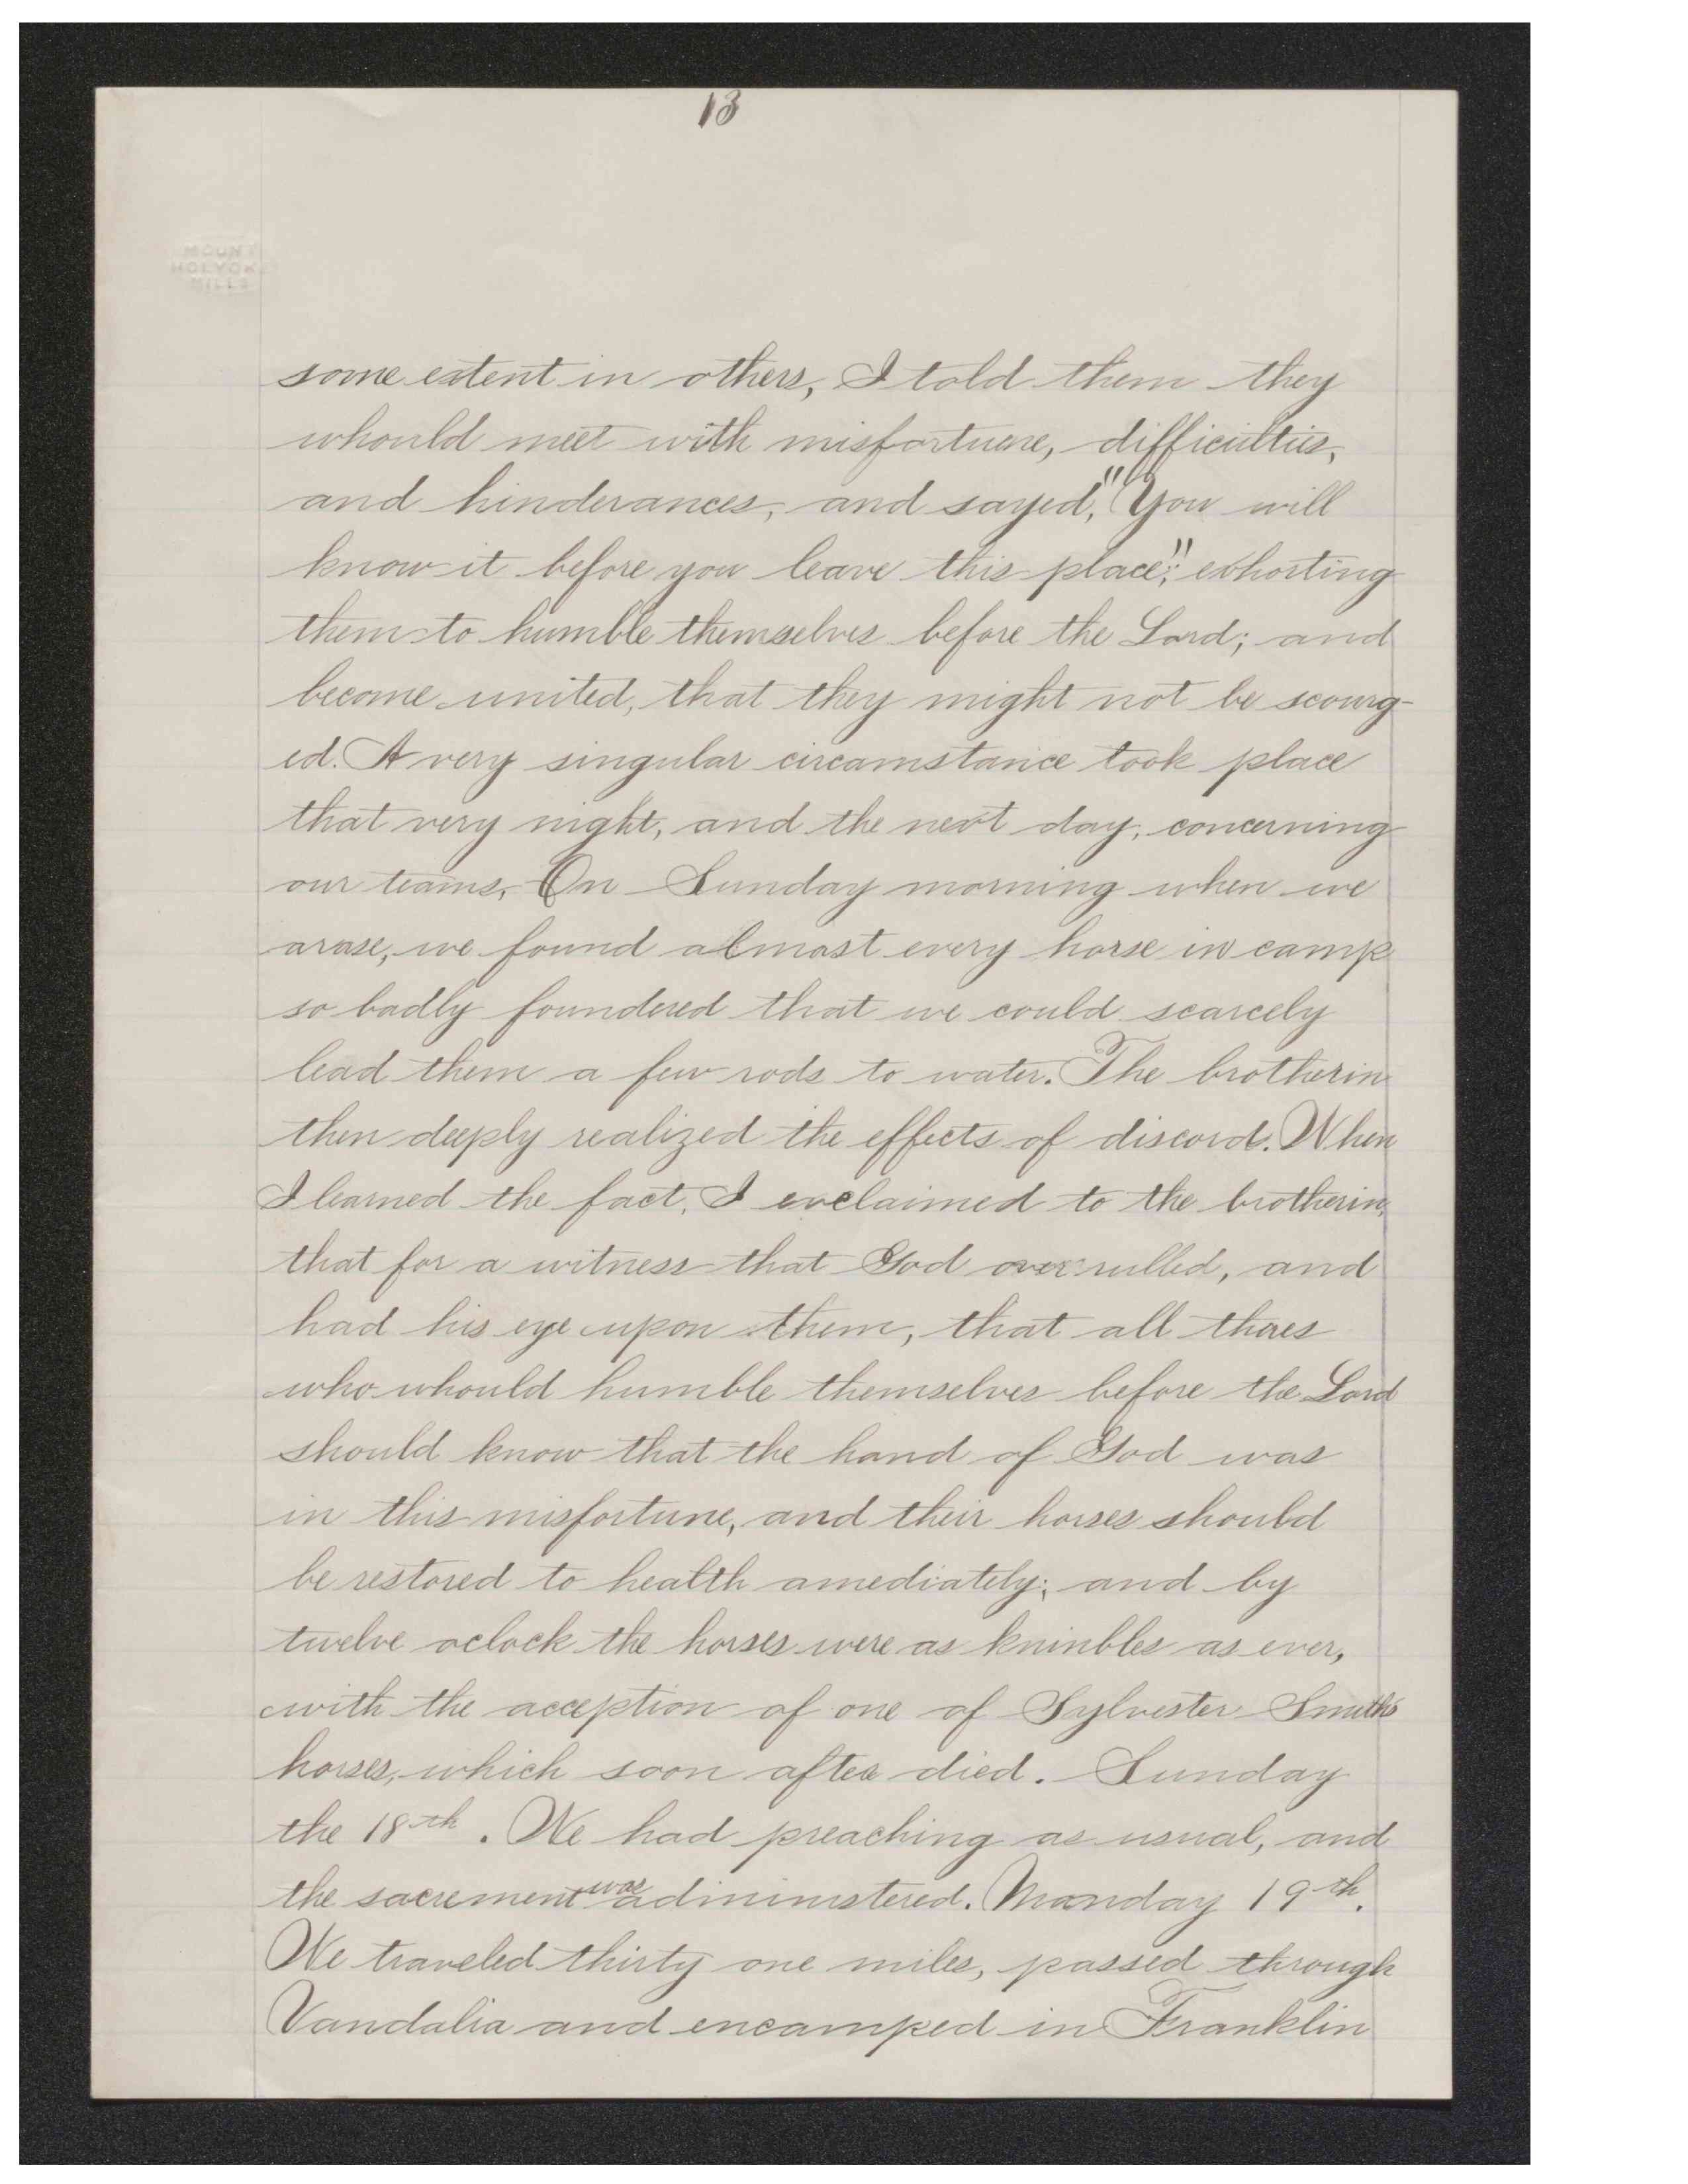 13
MOUNT
HOLYOKE
MILLS
some extent in others, I told them they
whould meet with misfortune, difficulties,
and hinderances, and sayed, "You will
know it before you leave this place"; exhorting
them to humble themselves before the Lord; and
become united, that they might not be scourg-
ed. A very singular circamstance took place
that very night, and the next day, concerning
our teams, On Sunday morning when we
arase, we found almost every horse in camp
so badly foundered that we could scarcely
lead them a few rods to water. The brotherin
then deeply realized the effects of discord. When
I learned the fact, I exclaimed to the brotherin,
that for a witness that God overrulled, and
had his eye upon them, that all thoes
who whould humble themselves before the Lord
should know that the hand of God was
in this misfortune, and their horses should
be restored to health amediately; and by
twelve oclock the horses were as kninbles as ever,
with the acception of one of Sylvester Smiths
horses, which soon after died. Sunday
the 18th. We had preaching as usual, and
the sacrement was adininistered. Monday 19th.
We traveled thirty one miles, passed through
Vandalia and encamped in Franklin